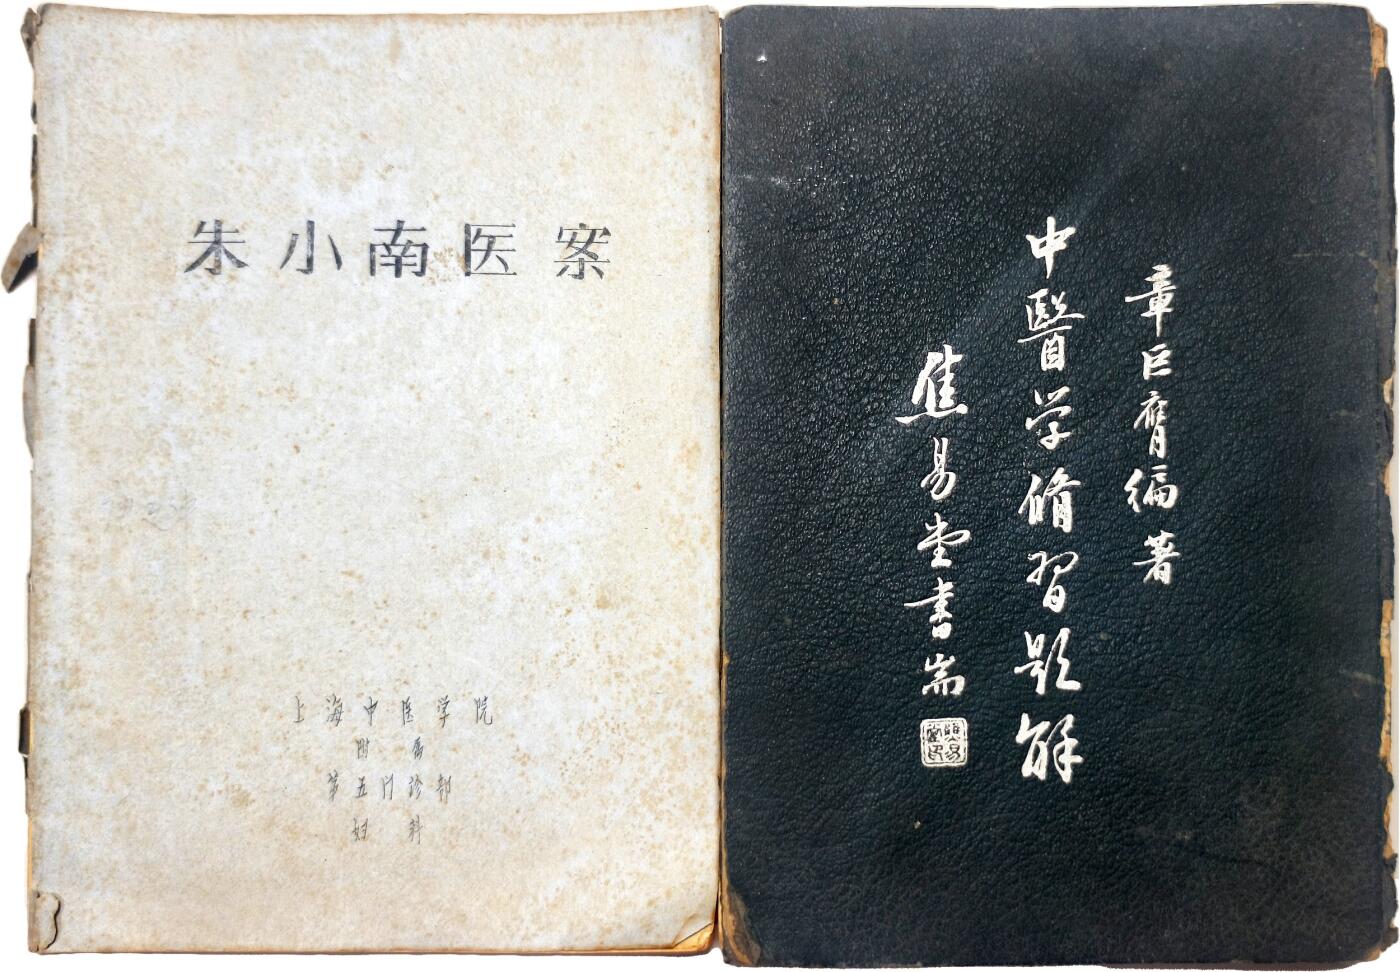 朱小南医案
上海中医学院
附属
第五门诊部
妇科
章巨膺编著
中醫学脩习题解
焦易堂書耑
焦易堂印